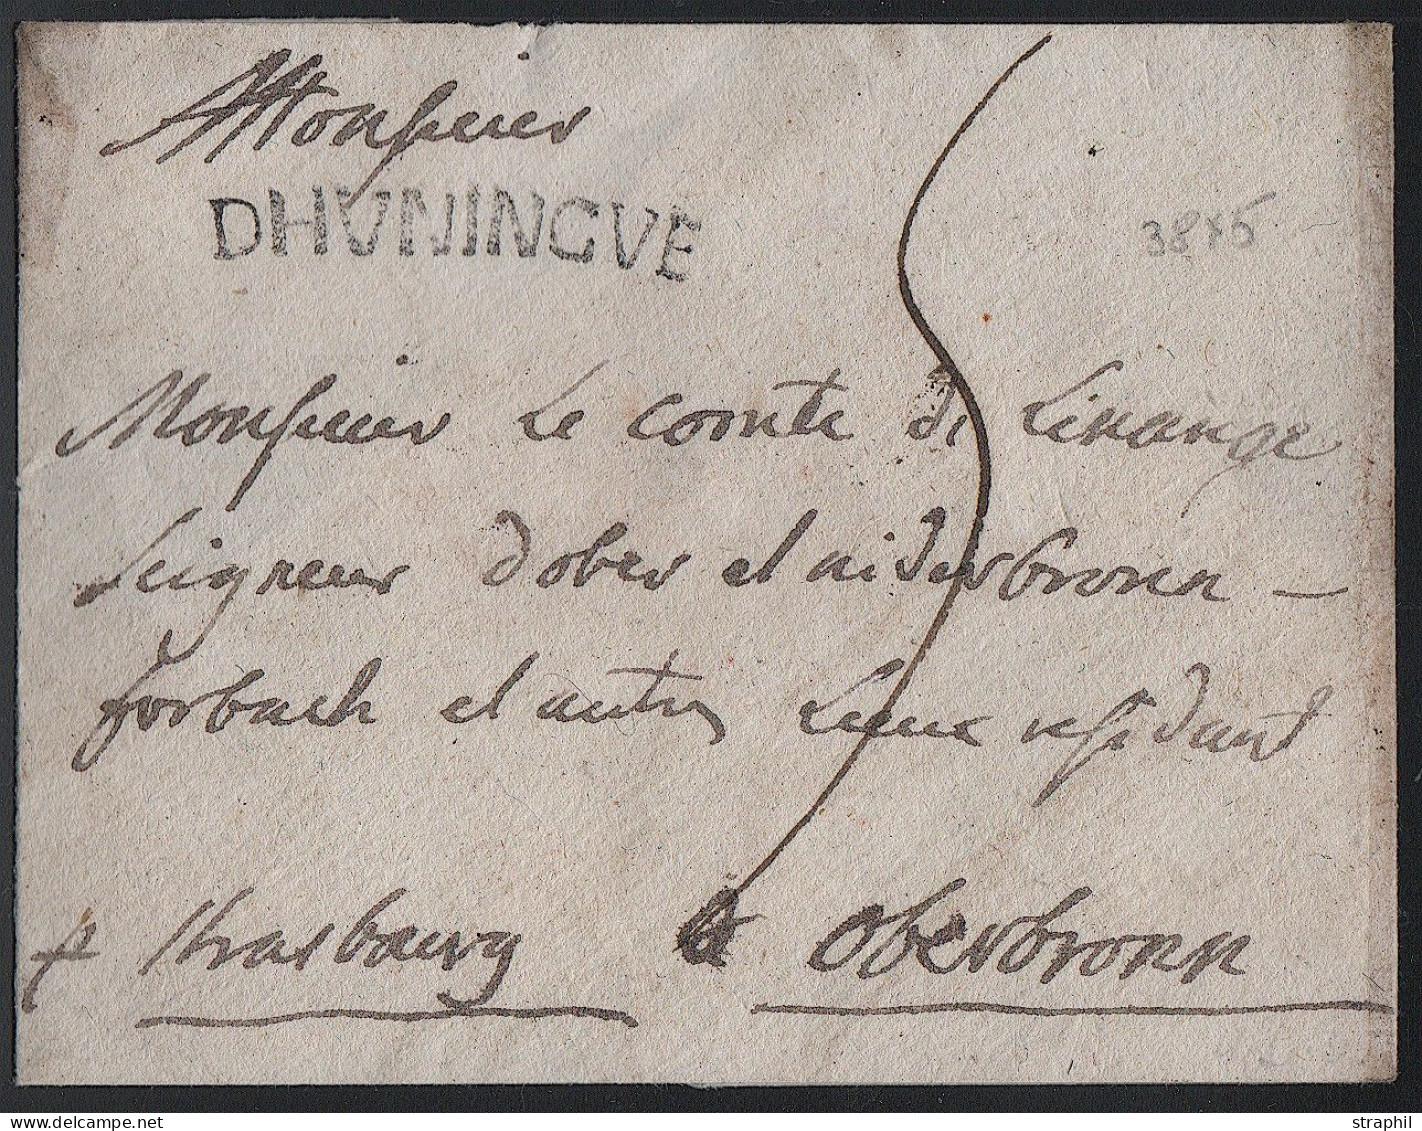 Monsieur
DHVNINGVE
Monsieur Le comte de Linange
Seigneur d'ober et niderbronn –
forbach et autres Lieux residant
p strasbourg a oberbronn
www.delcampe.net
straphil